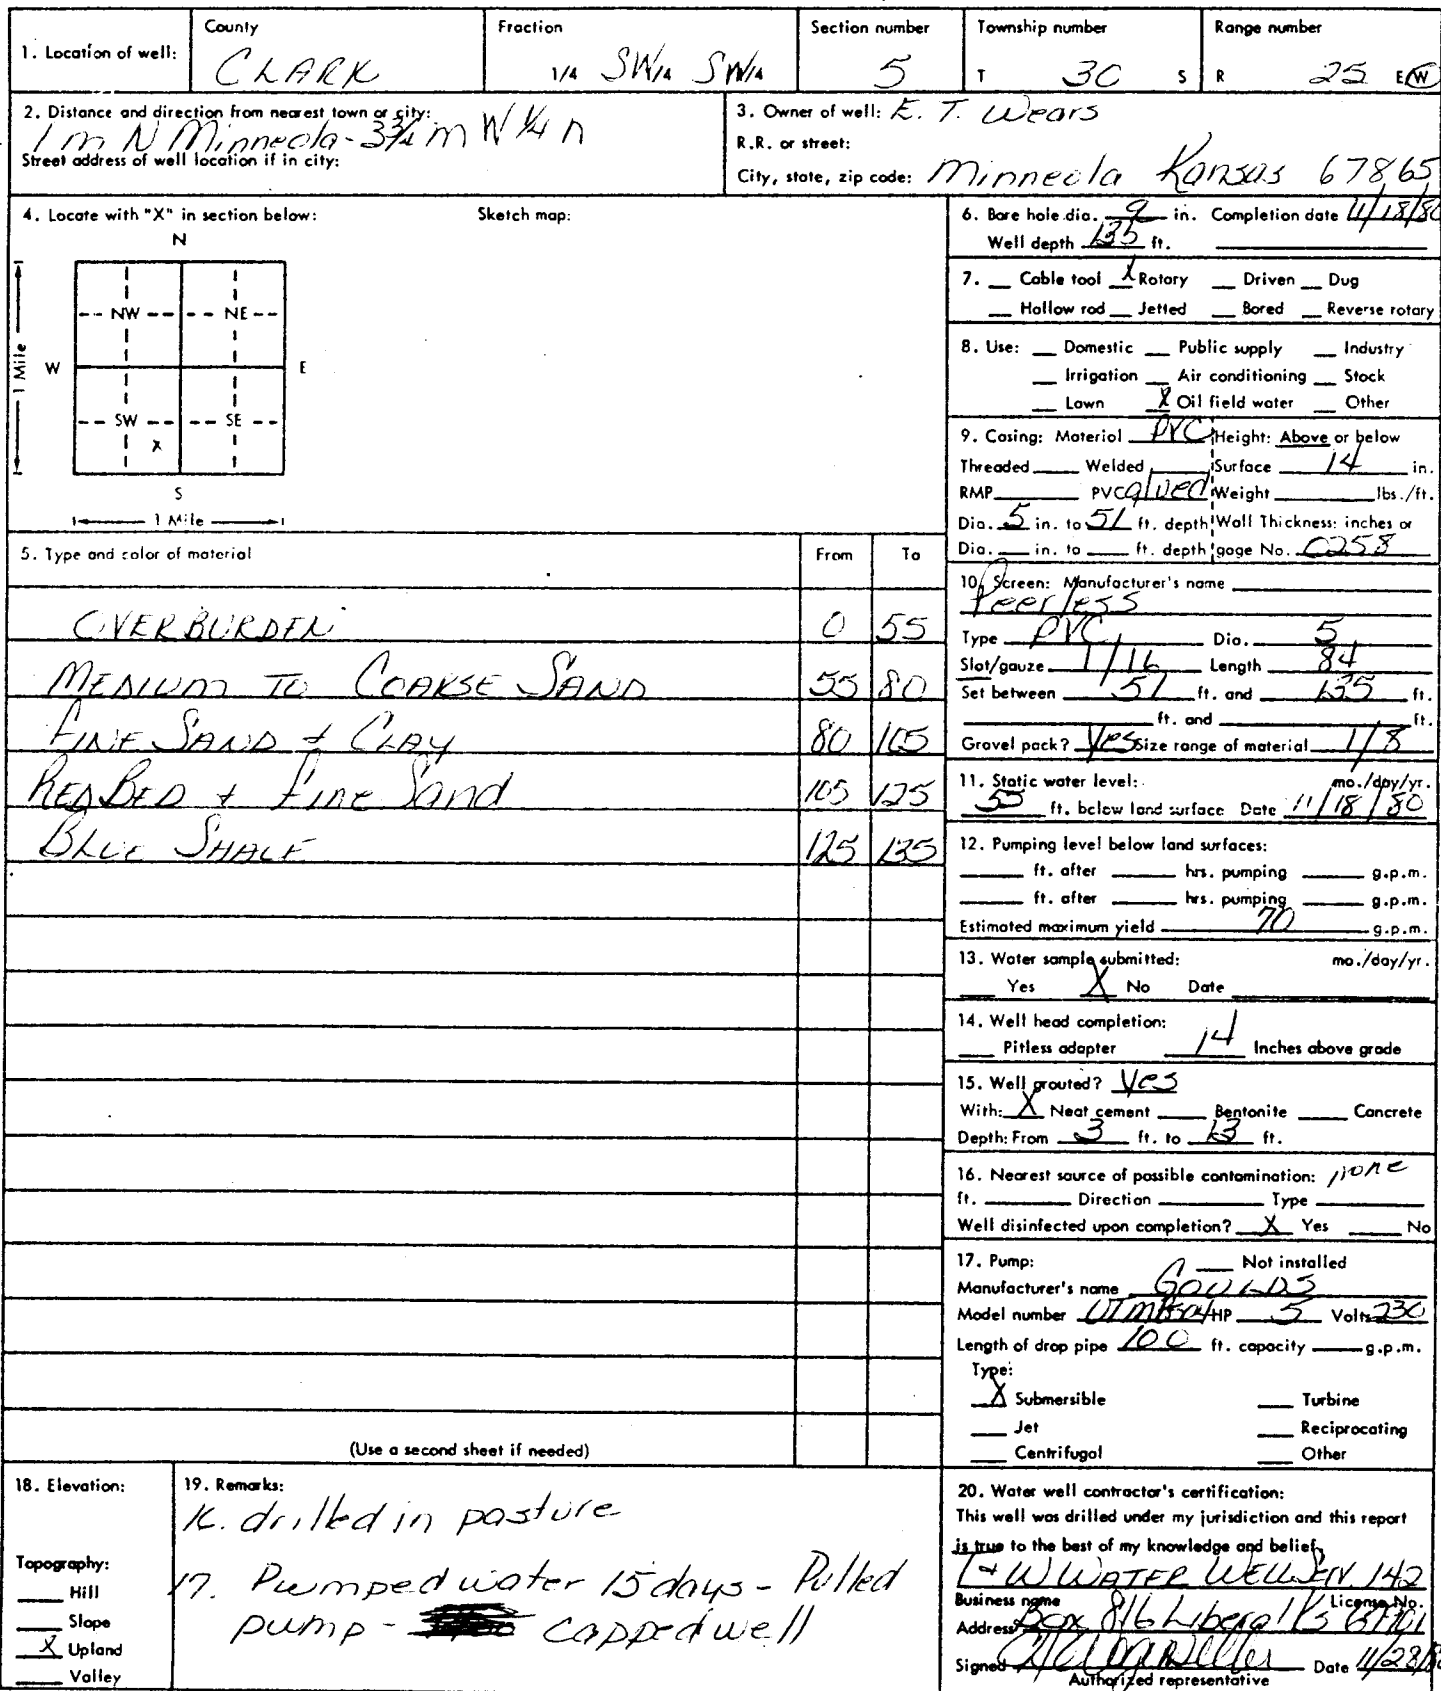 1. Location of well:
County
CLARK
Fraction
1/4 SW1/4 SW1/4
Section number
5
Township number
T 30 S
Range number
R 25 E/W
2. Distance and direction from nearest town or city:
1 m N Minneola - 3 3/4 m W 1/4 n
Street address of well location if in city:
3. Owner of well: E. T. Wears
R.R. or street:
City, state, zip code: Minneola Kansas 67865
4. Locate with "X" in section below:
Sketch map:
N
NW NE
W E
SW SE
X
S
1 Mile
1 Mile
6. Bore hole dia. 9 in. Completion date 11/18/80
Well depth 135 ft.
7. __ Cable tool X Rotary __ Driven __ Dug
__ Hollow rod __ Jetted __ Bored __ Reverse rotary
8. Use: __ Domestic __ Public supply __ Industry
__ Irrigation __ Air conditioning __ Stock
__ Lawn X Oil field water __ Other
9. Casing: Material PVC Height: Above or below
Threaded ____ Welded ____ Surface 14 in.
RMP ____ PVC glued Weight ____ lbs./ft.
Dia. 5 in. to 51 ft. depth Wall Thickness: inches or
Dia. __ in. to __ ft. depth gage No. 0258
5. Type and color of material From To
OVERBURDEN 0 55
MEDIUM TO COARSE SAND 55 80
FINE SAND + CLAY 80 105
RED BED + FINE Sand 105 125
BLUE SHALE 125 135
(Use a second sheet if needed)
10. Screen: Manufacturer's name
Peerless
Type PVC Dia. 5
Slot/gauze 1/16 Length 84
Set between 51 ft. and 135 ft.
____ ft. and ____ ft.
Gravel pack? Yes Size range of material 1/8
11. Static water level: mo./day/yr.
55 ft. below land surface Date 11/18/80
12. Pumping level below land surfaces:
____ ft. after ____ hrs. pumping ____ g.p.m.
____ ft. after ____ hrs. pumping ____ g.p.m.
Estimated maximum yield 70 g.p.m.
13. Water sample submitted: mo./day/yr.
__ Yes X No Date
14. Well head completion:
__ Pitless adapter 14 Inches above grade
15. Well grouted? Yes
With: X Neat cement ____ Bentonite ____ Concrete
Depth: From 3 ft. to 13 ft.
16. Nearest source of possible contamination: none
ft. ____ Direction ____ Type ____
Well disinfected upon completion? X Yes ____ No
17. Pump: __ Not installed
Manufacturer's name GOULDS
Model number HP 5 Volts 230
Length of drop pipe 100 ft. capacity ____ g.p.m.
Type:
X Submersible __ Turbine
__ Jet __ Reciprocating
__ Centrifugal __ Other
18. Elevation:
Topography:
__ Hill
__ Slope
X Upland
__ Valley
19. Remarks:
16. drilled in pasture
17. Pumped water 15 days - Pulled
pump - capped well
20. Water well contractor's certification:
This well was drilled under my jurisdiction and this report
is true to the best of my knowledge and belief.
W WATER WELL SERV. 142
Business name License No.
Address Box 816 Liberal Ks 67901
Signed Date 11/28/80
Authorized representative